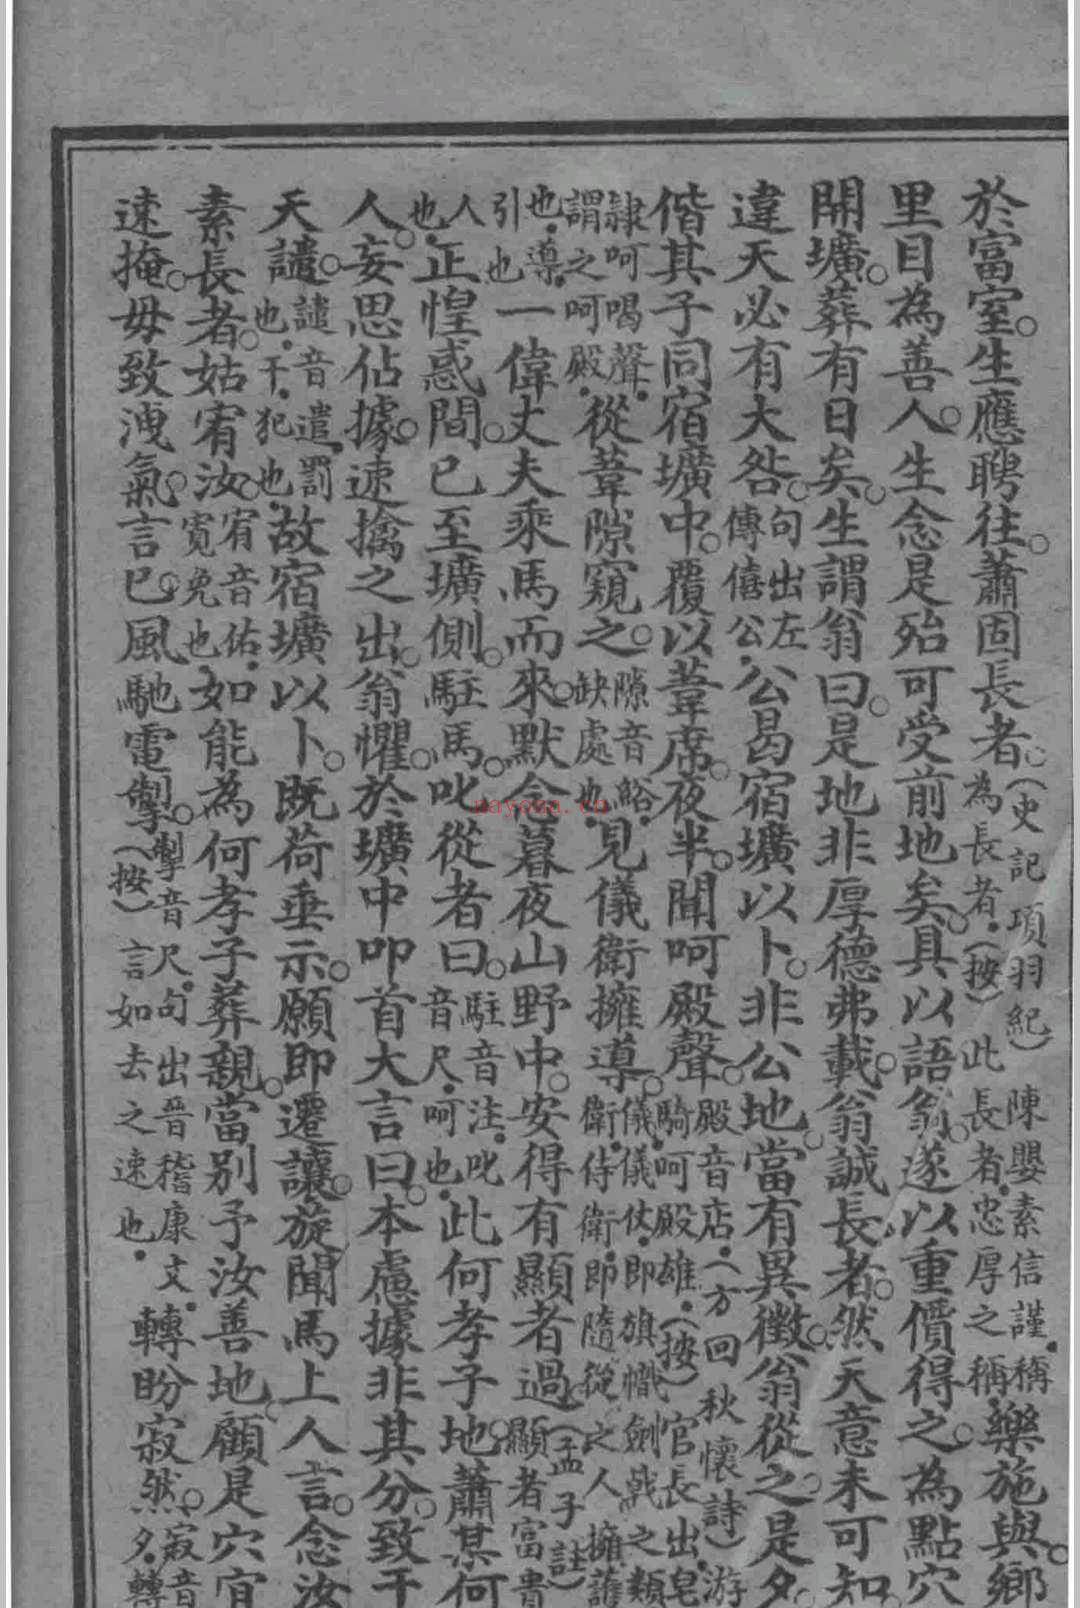 於富室。生應聘往。蕭固長者。(史記項羽紀)陳嬰素信謹。稱為長者。(按)此長者。忠厚之稱。樂施與。鄉
里目為善人。生念是殆可受前地矣。具以語翁。遂以重價得之。為點穴
開壙。葬有日矣。生謂翁曰。是地非厚德弗載。翁誠長者。然天意未可知。
違天必有大咎。句出左傳僖公。公曷宿壙以卜。非公地。當有異徵。翁從之。是夕。
偕其子同宿壙中。覆以葦席。夜半。聞呵殿聲。殿音店。(方回秋懷詩)游騎呵殿雄。(按)官長出皂
隸呵喝聲。謂之呵殿。從葦隙窺之。隙音綌。缺處也。見儀衛擁導。儀。儀仗。即旗幟劍戟之類。衛。侍衛。即隨從之人。擁護
也。導。引也。一偉丈夫乘馬而來。默念暮夜山野中。安得有顯者過。(孟子註)顯者富貴
人也。正惶惑間。已至壙側。駐馬。叱從者曰。駐音注。叱音尺。呵也。此何孝子地。蕭某何
人。妄思佔據。速擒之出。翁懼。於壙中叩首大言曰。本慮據非其分。致干
天譴。譴音遣。罰也。干。犯也。故宿壙以卜。既荷垂示。願即遷讓。旋聞馬上人言。念汝
素長者。姑宥汝。宥音佑。寬免也。如能為何孝子葬親。當別予汝善地。顧是穴宜
速掩。毋致洩氣。言已。風馳電掣。掣音尺。句出晉嵇康文。(按)言如去之速也。轉盼寂然。寂音夕。轉
nayona.cn